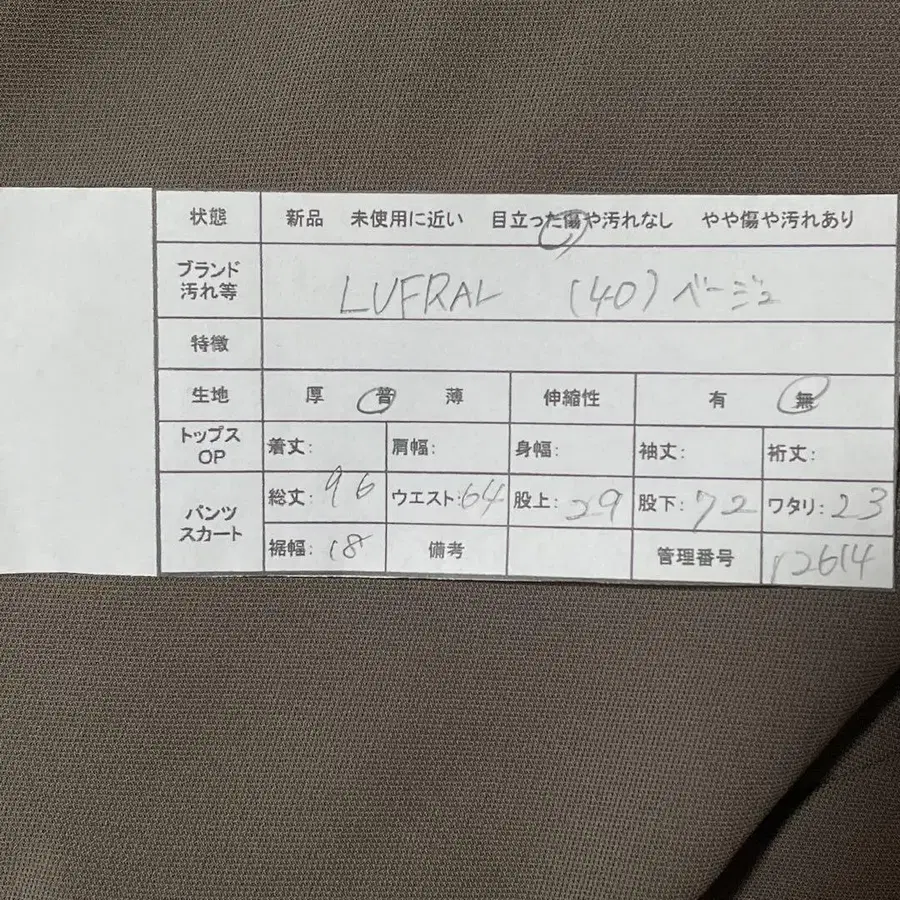 状態 新品 未使用に近い 目立った傷や汚れなし やや傷や汚れあり
ブランド
汚れ等 LUFRAL (40) ベージュ
特徴
生地 厚 普 薄 伸縮性 有 無
トップス
OP 着丈: 肩幅: 身幅: 袖丈: 裄丈:
パンツ
スカート 総丈: 96 ウエスト: 64 股上: 29 股下: 72 ワタリ: 23
裾幅: 18 備考 管理番号 12614